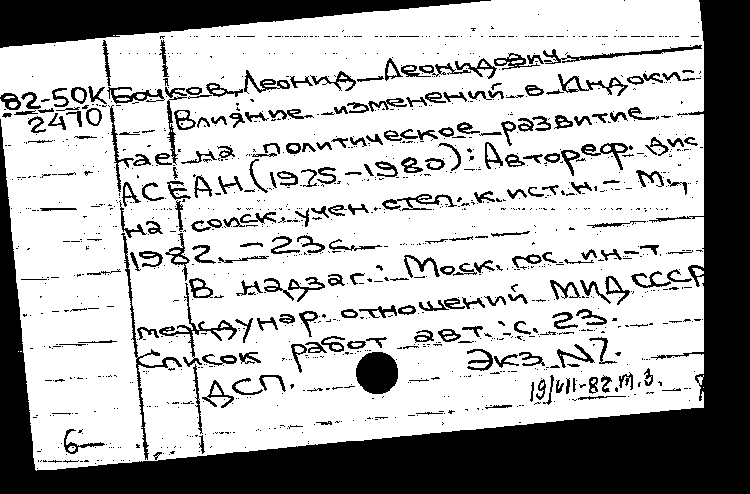 82-50К Бочков, Леонид Леонидович.
2470 Влияние изменений в Индоки-
тае на политическое развитие
АСЕАН (1975-1980): Автореф. дис
на соиск. учен. степ. к. ист. н. - М.,
1982. - 23 с.
В надзаг.: Моск. гос. ин-т
междунар. отношений МИД СССР
Список работ авт.: с. 23.
ДСП. Экз. N7.
19/VII-82. т.3.
6-